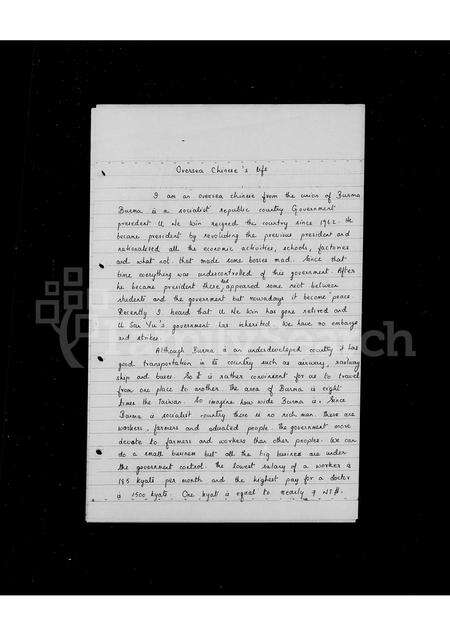 Oversea Chinese's life
I am an oversea chinese from the union of Burma
Burma is a socialist republic country Government
president U Ne Win reigned the country since 1962. He
became president by revoluting the previous president and
nationalised all the economic activities, schools, factories
and what not. that made some bosses mad. Since that
time everything was undercontrolled of his government. After
he became president there, had appeared some riot between
students and the government but nowadays it become peace
Recently I heard that U Ne Win has gone retired and
U San Yu's government has inherited. We have no embargo
and strikes.
Although Burma is an underdeveloped country it has
good transportation in its country such as airway, railway
ship and buses. So it is rather convinient for us to travel
from one place to another. the area of Burma is eight
times the Taiwan. So imagine how wide Burma is. Since
Burma is socialist country there is no rich man. There are
workers, farmers and educated people. the government more
devote to farmers and workers than other peoples. We can
do a small business but all the big business are under
the government control. the lowest salary of a worker is
185 kyats per month and the highest pay for a doctor
is 1500 kyats. One kyat is equal to nearly 7 NT$.